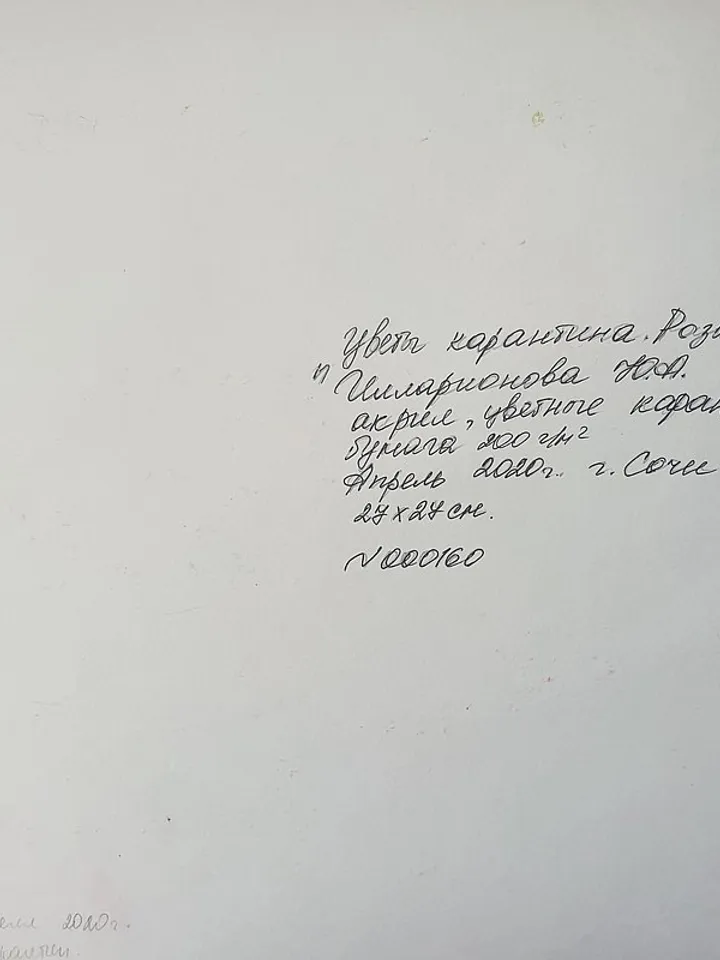 Цветы карантина. Роз
Илларионова Ю.А.
акрил, цветные каран
бумага 200 г/м²
Апрель 2020г. г. Сочи
27х27 см.
N000160
2020г.